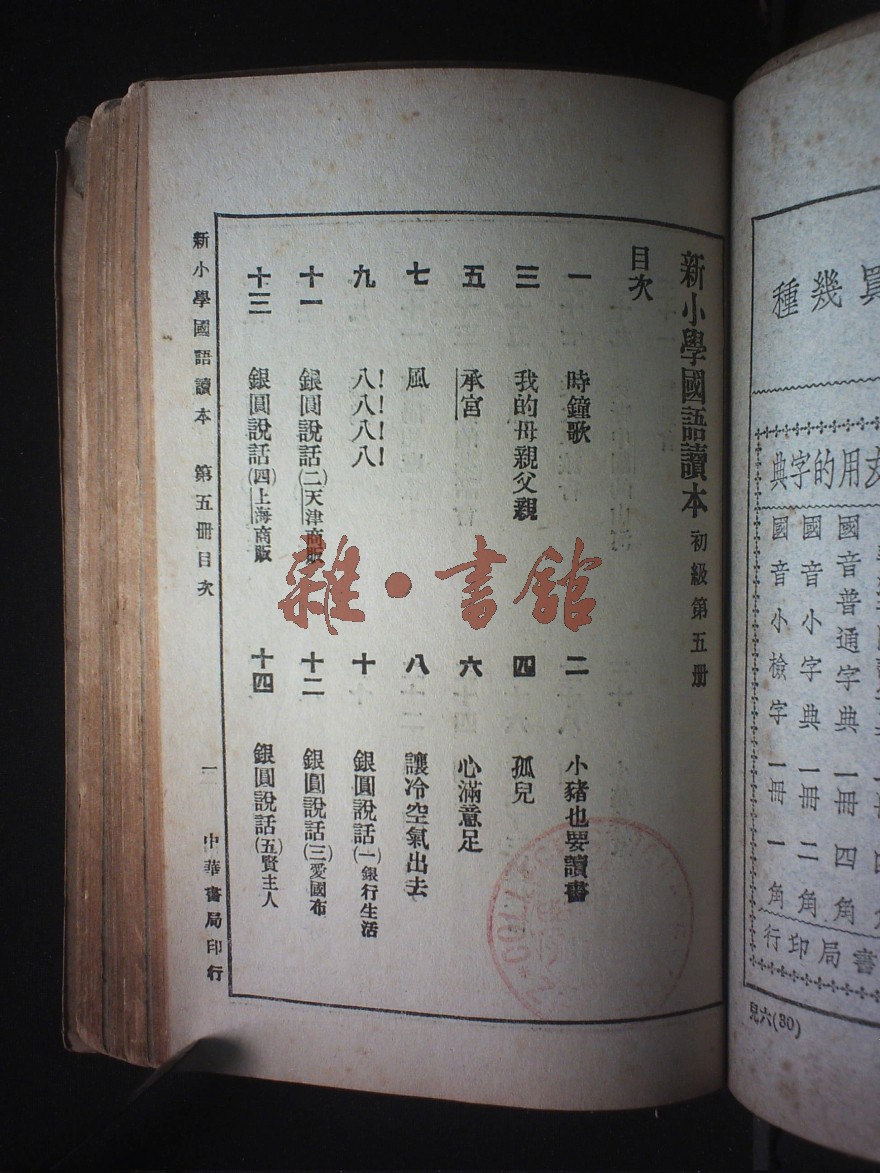 買幾種
文用的字典
國音普通字典 一冊 四角
國音小字典 一冊 二角
國音小檢字 一冊 一角
書局印行
兒六(80)
新小學國語讀本 初級第五册
目次
一 時鐘歌
二 小豬也要讀書
三 我的母親父親
四 孤兒
五 承宮
六 心滿意足
七 風
八 讓冷空氣出去
九 八!八!八!八!
十 銀圓說話(一)銀行生活
十一 銀圓說話(二)天津商販
十二 銀圓說話(三)愛國布
十三 銀圓說話(四)上海商販
十四 銀圓說話(五)賢主人
新小學國語讀本 第五冊目次 一 中華書局印行
雜·書館